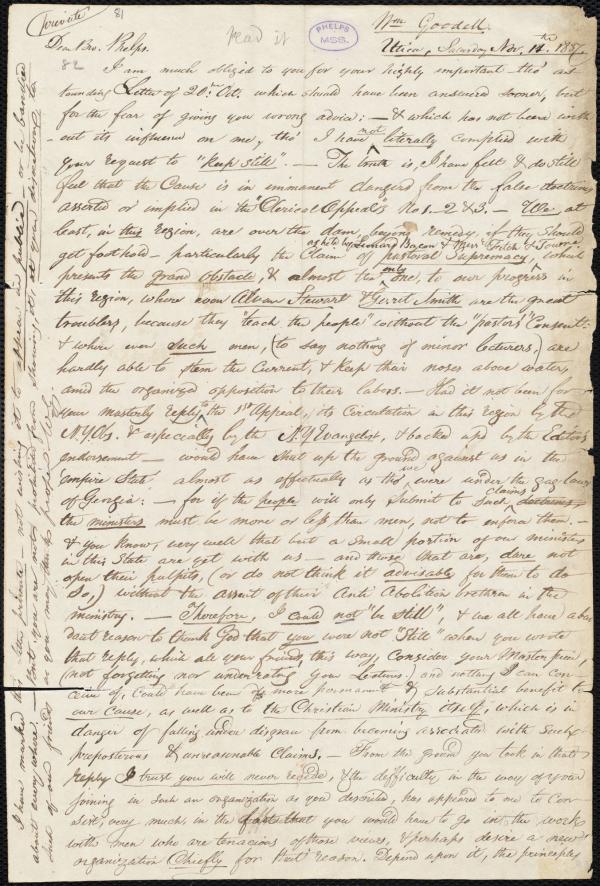 (Private) 81
Wm Goodell.
read it
PHELPS MSS.
Utica, Saturday Nov. 11.th 1837
Dear Bro. Phelps.
82
I am much obliged to you for your highly important tho' as-
tounding Letter of 20.th Ult. which should have been answered sooner, but
for the fear of giving you wrong advice: — & which has not been with-
out its influence on me, tho' I have not literally complied with
your request to "keep still". — The truth is, I have felt & do still
feel that the Cause is in imminent danger from the false doctrines
asserted or implied in the "Clerical Appeals" No 1. 2 & 3. — We, at
least, in this region, are over the dam, beyond remedy, if they should
get foothold — particularly the claim of pastoral Supremacy, which
as held by Bacon & Fitch & Towne
presents the grand obstacle, & almost the only one, to our progress in
this region, where even Alvan Stewart & Gerrit Smith are the great
troublers, because they "teach the people" without the "pastors' Consent":
& where even such men, (to say nothing of minor lecturers,) are
hardly able to stem the Current, & keep their noses above water,
amid the organized opposition to their labors. — Had it not been for
your masterly reply to the 1st Appeal, its Circulation in this region by the
N.Y. Obs. & especially by the N.Y Evangelist, & backed up by the Editor's
endorsement — would have shut up the ground against us in the
'empire State' almost as effectually as tho' we were under the gag-laws
of Georgia: — for if the people will only submit to such claims
the ministers must be more or less than men, not to enforce them. —
& you know, very well that but a small portion of our ministers
in this State are yet with us — and those that are, dare not
open their pulpits, (or do not think it advisable for them to do
so,) without the assent of their Anti Abolition brethren in the
ministry. — Therefore, I could not "be still", & we all have abun-
dant reason to thank God that you were not "Still" when you wrote
that reply, which all your friends, this way, consider your Master piece,
not forgetting nor underrating your Lectures: and nothing I can con-
ceive of, could have been of more permanent & substantial benefit to
our cause, as well as to the Christian Ministry itself, which is in
danger of falling under disgrace from becoming associated with such
preposterous & unreasonable claims. — From the ground you took in that
reply I trust you will never recede, & the difficulty, in the way of your
joining in such an organization as you described, has appeared to me to con-
sist, very much, in the fact that you would have to go into the work
with men who are tenacious of those views, & perhaps desire a new
organization Chiefly for that reason. Depend upon it, the principles
I have marked this letter private — not wishing it to appear in public — or be handed
about every where. — But you are not prohibited from showing it, at your discretion, to
such of our friends as you may think proper. W.G.